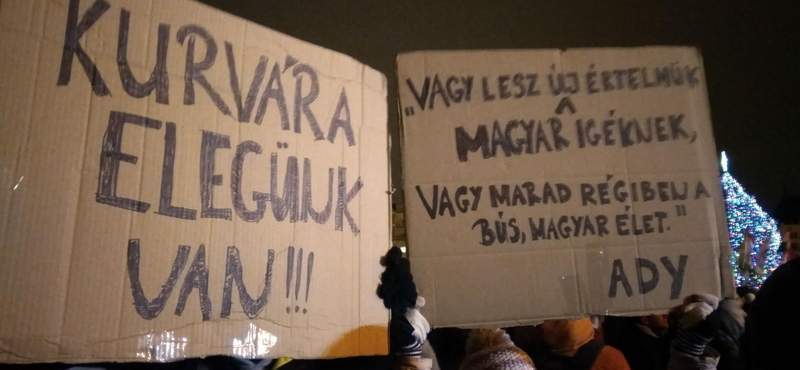 KURVÁRA
ELEGÜNK
VAN!!!
„VAGY LESZ ÚJ ÉRTELMÜK
A
MAGYAR IGÉKNEK,
VAGY MARAD RÉGIBEN A
BÚS, MAGYAR ÉLET."
ADY